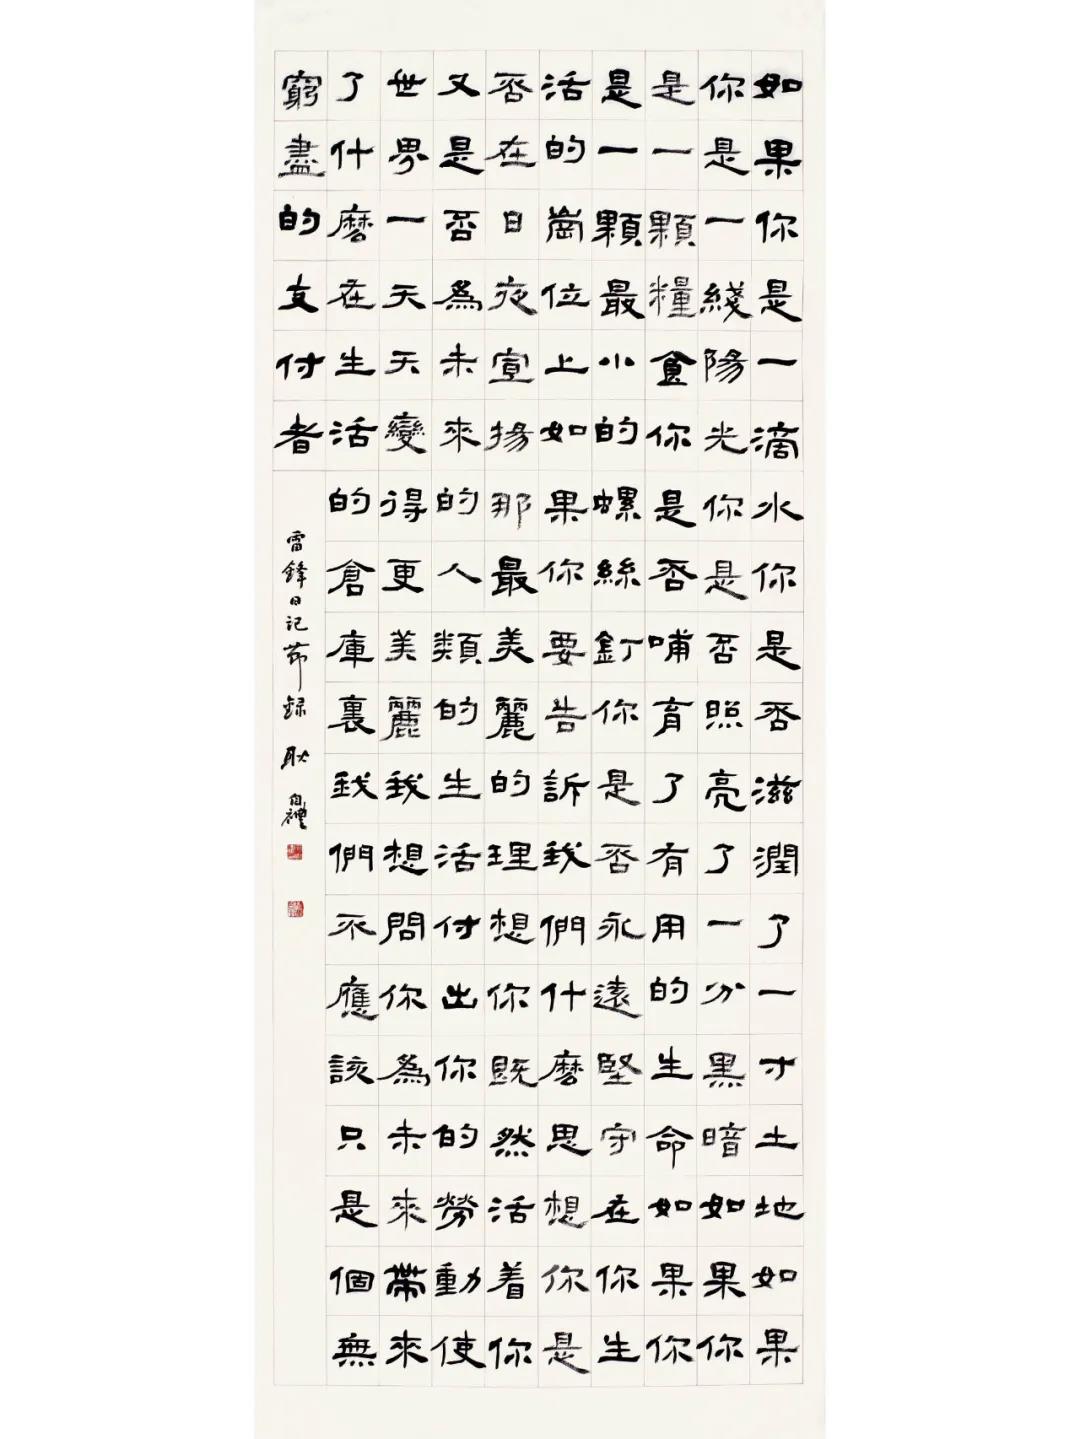 如果你是一滴水你是否滋潤了一寸土地如果
你是一綫陽光你是否照亮了一分黑暗如果你
是一顆糧食你是否哺育了有用的生命如果你
是一顆最小的螺絲釘你是否永遠堅守在你生
活的崗位上如果你要告訴我們什麼思想你是
否在日夜宣揚那最美麗的理想你既然活着你
又是否為未來的人類的生活付出你的勞動使
世界一天天變得更美麗我想問你為未來帶來
了什麼在生活的倉庫裏我們不應該只是個無
窮盡的支付者
雷鋒日記節録 耿自禮